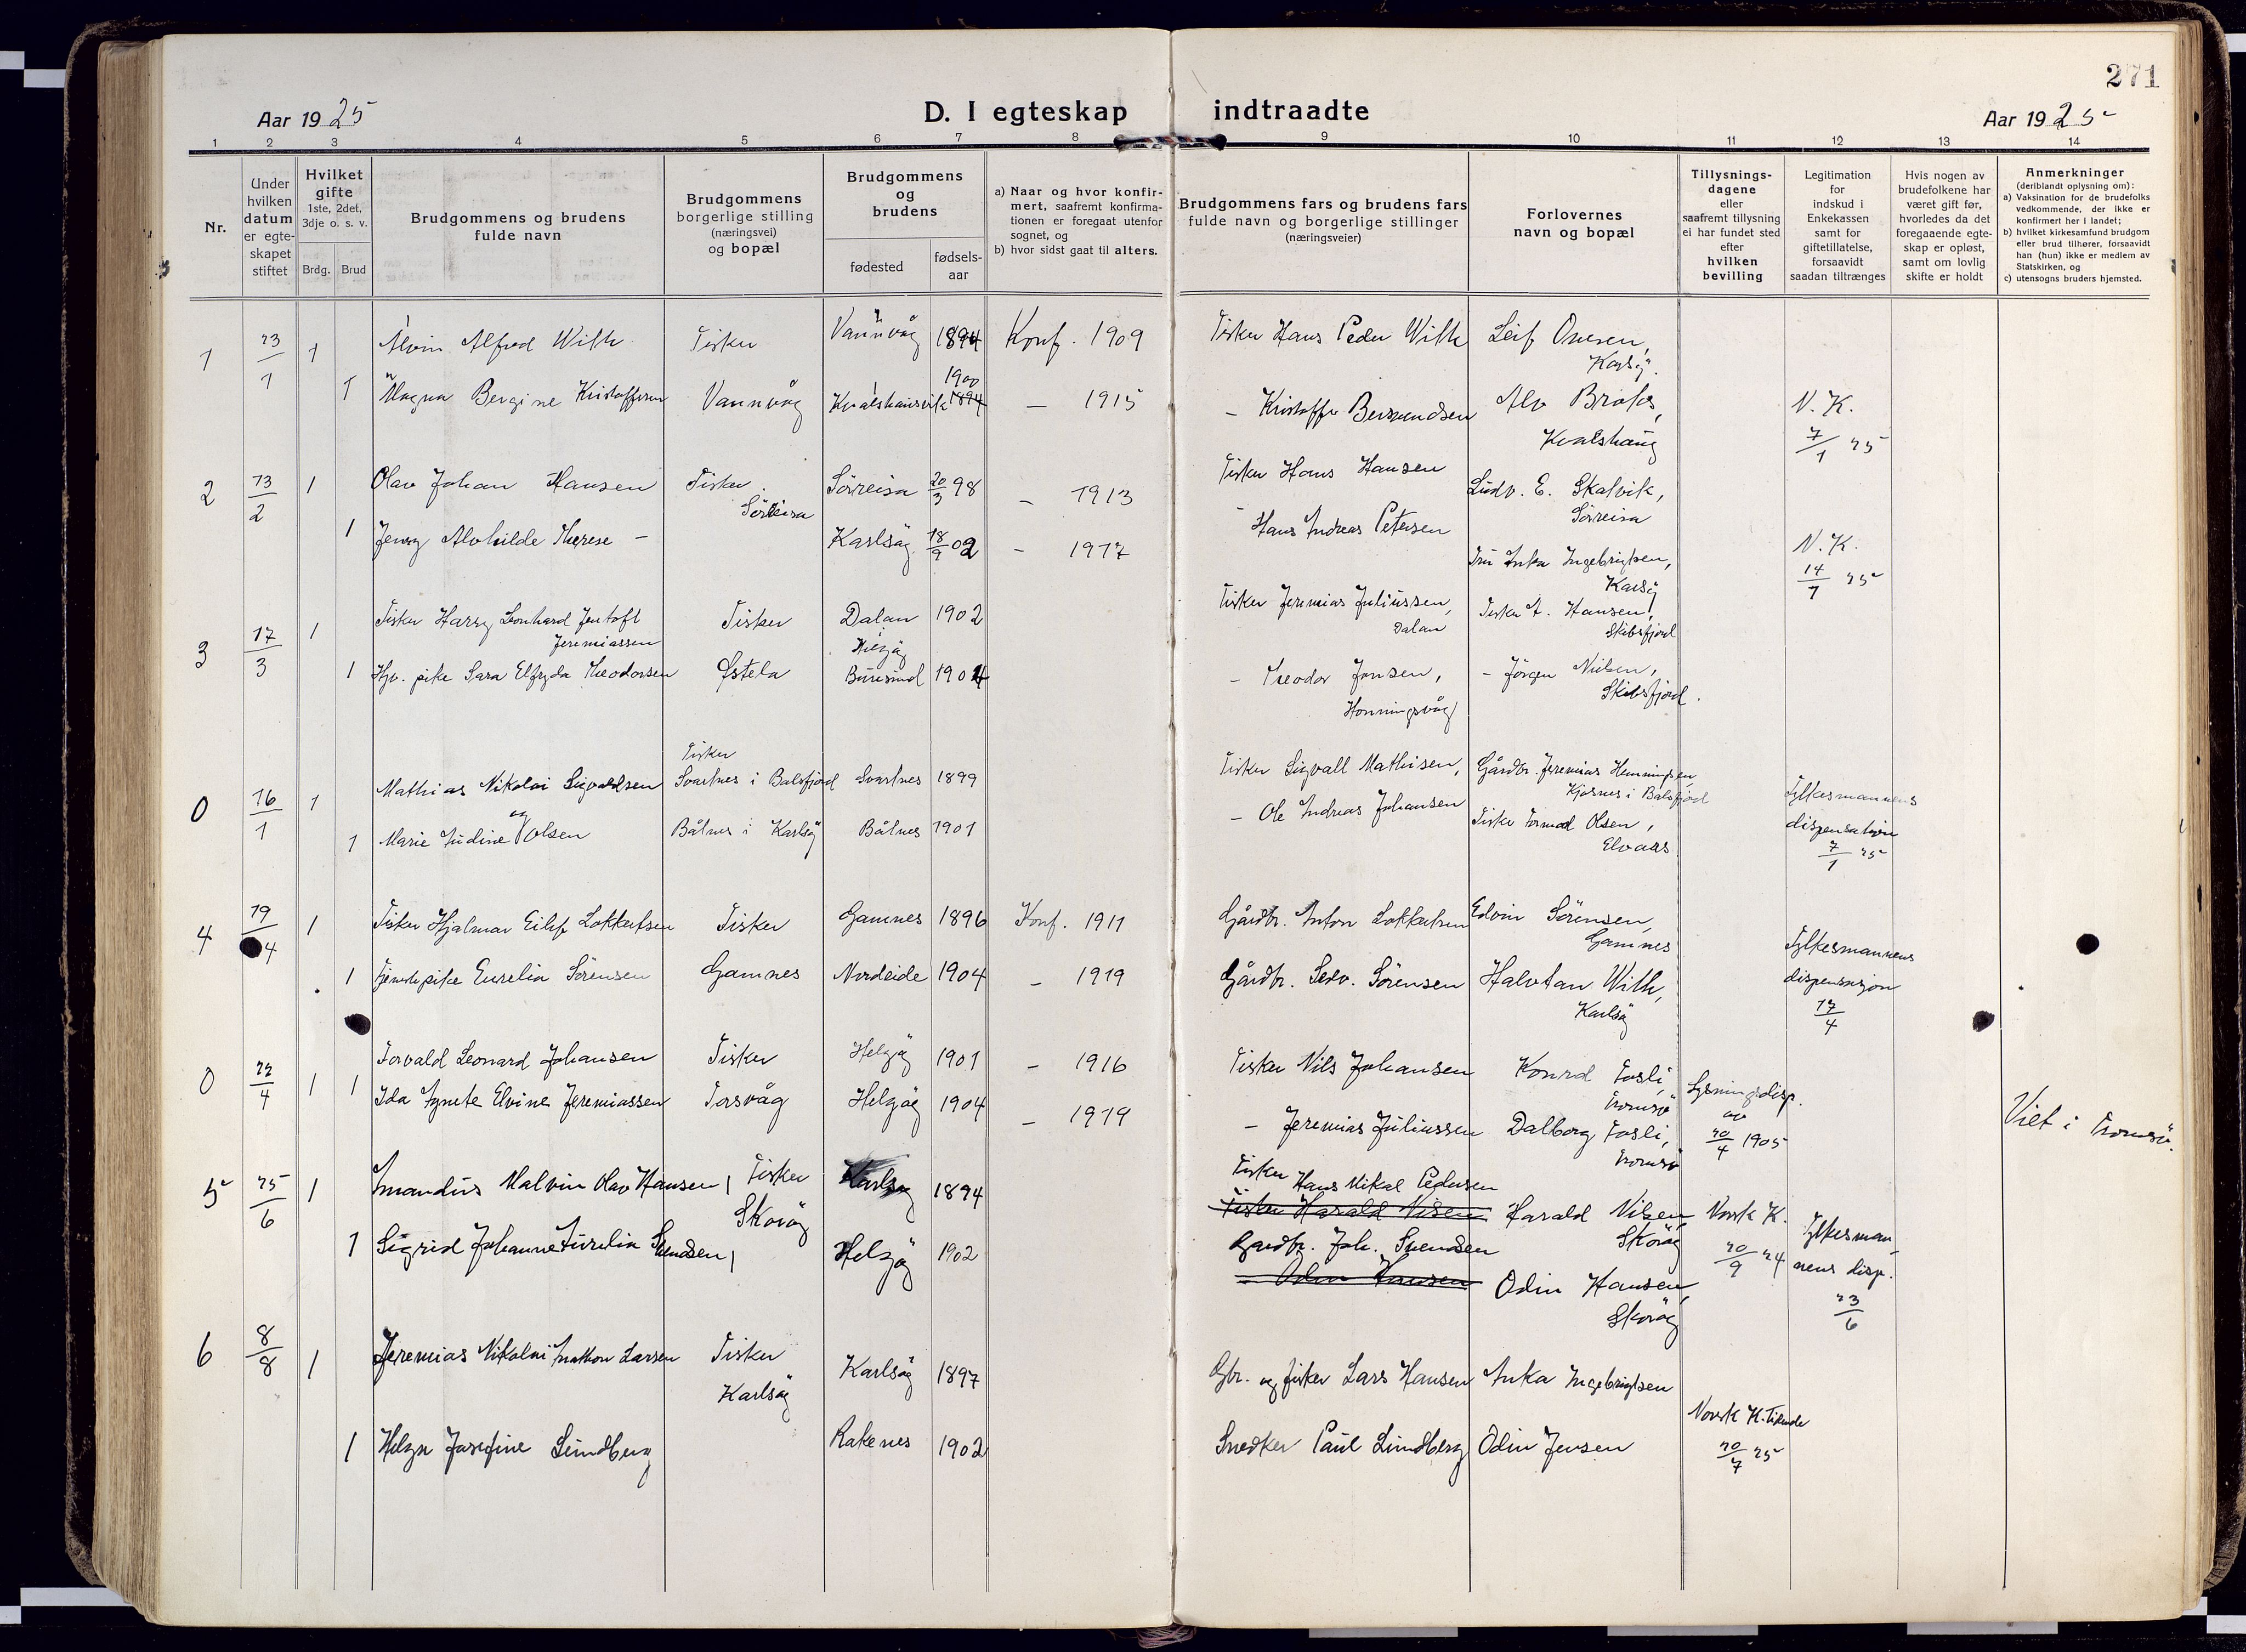 271
Aar 1925
D. I egteskap indtraadte
Aar 1925
1 2 3 4 5 6 7 8 9 10 11 12 13 14
Nr.
Under hvilken datum er egteskapet stiftet
Hvilket gifte
1ste, 2det, 3dje o. s. v.
Brdg. Brud
Brudgommens og brudens fulde navn
Brudgommens borgerlige stilling (næringsvei) og bopæl
Brudgommens og brudens
fødested
fødselsaar
a) Naar og hvor konfirmert, saafremt konfirmationen er foregaat utenfor sognet, og
b) hvor sidst gaat til alters.
Brudgommens fars og brudens fars fulde navn og borgerlige stillinger (næringsveier)
Forlovernes navn og bopæl
Tillysningsdagene eller saafremt tillysning ei har fundet sted efter hvilken bevilling
Legitimation for indskud i Enkekassen samt for giftetillatelse, forsaavidt saadan tiltrænges
Hvis nogen av brudefolkene har været gift før, hvorledes da det foregaaende egteskap er opløst, samt om lovlig skifte er holdt
Anmerkninger
(deriblandt oplysning om):
a) Vaksination for de brudefolks vedkommende, der ikke er konfirmert her i landet;
b) hvilket kirkesamfund brudgom eller brud tilhører, forsaavidt han (hun) ikke er medlem av Statskirken, og
c) utensogns bruders hjemsted.
1 23/1 1 Alvin Alfred With Fisker Vannvåg 1894 Konf. 1909 Fisker Hans Peder With Leif Karlsöy.
1 Magna Bergine Kristoffersen Vannvåg 1900 1894 — 1915 — Kristoffer Alv
Kvalshaug
N. K.
7/1 25
2 13/2 1 Olav Johan Hansen Fisker Sörreisa Sörreisa 20/3 98 — 1913 Fisker Hans Hansen Ludv. E. Skalvik, Sörreisa
1 Jenny Alvhilde Therese — Karlsöy 18/9 02 — 1917 — Hans Andreas Petersen Anka Ingebrigtsen, Karlsöy
N. K.
14/1 25
3 17/3 1 Fisker Harry Leonhard Jentoft Jeremiassen Fisker Dalan Helgöy 1902 Fisker Jeremias Juliussen, Dalan Fisker A. Hansen, Skibsfjord
1 Hjv. pike Sara Elfryda Theodorsen 1904 — Teodor Jensen, Honningsvåg — Jörgen Nilsen, Skibsfjord.
0 16/1 1 Mathias Nikolai Sigvaldsen Fisker Svartnes i Balsfjord Svartnes 1899 Fisker Sigvall Mathisen, Gårdbr. Jeremias Henningsen, Kjosnes i Balsfjord
og
1 Marie Olsen Båtnes i Karlsöy Båtnes 1901 — Ole Andreas Johansen Fisker Olsen,
Fylkesmannens dispensation
7/1 25
4 19/4 1 Fisker Hjalmar Eilif Lokkertsen Fisker Gamnes 1896 Konf. 1911 Gårdbr. Anton Lokkertsen Edvin Sörensen, Gamnes
1 Tjenestepike Eurelia Sörensen Gamnes Nordeide 1904 — 1919 Gårdbr. Sörensen Halvtan With, Karlsöy
Fylkesmannens dispensasjon
17/4
0 22/4 1 1 Torvald Leonard Johansen Fisker Helgöy 1901 — 1916 Fisker Nils Johansen Fosli, Tromsö
Ida Agnete Elvine Jeremiassen Torsvåg Helgöy 1904 — 1919 — Jeremias Juliussen Dalborg Fosli, Tromsö
Lysningsdisp. av 20/4 1905
Viet i Tromsö.
5 25/6 1 Amandus Malvin Olav Hansen, Fisker Skoröy Karlsöy 1894 Fisker Hans Mikal Pedersen
Fisker Harald Nilsen Harald Nilsen, Skoröy
1 Sigrid Johanne Aurelia Svendsen, Helgöy 1902 Gardbr. Joh. Svendsen
— Odin Hansen Odin Hansen, Skoröy
Norsk K. 20/9 24
Fylkesmannens disp. 23/6
6 8/8 1 Jeremias Nikolai Larsen Fisker Karlsöy Karlsöy 1897 Gbr. og fisker Lars Hansen Anka Ingebrigtsen
1 Helga Josefine Lindberg Rakenes 1902 Snedker Paul Lindberg Odin Jensen
Norsk K. Tidende
20/7 25